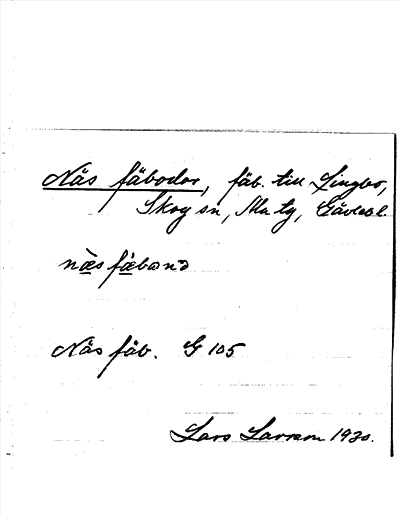 Näs fäbodar, fäb. till Lingbo,
Skog sn, Ma tg, Gävlebl.
næs fæbωnə
Näs fäb. G 105
Lars Larsson 1930.